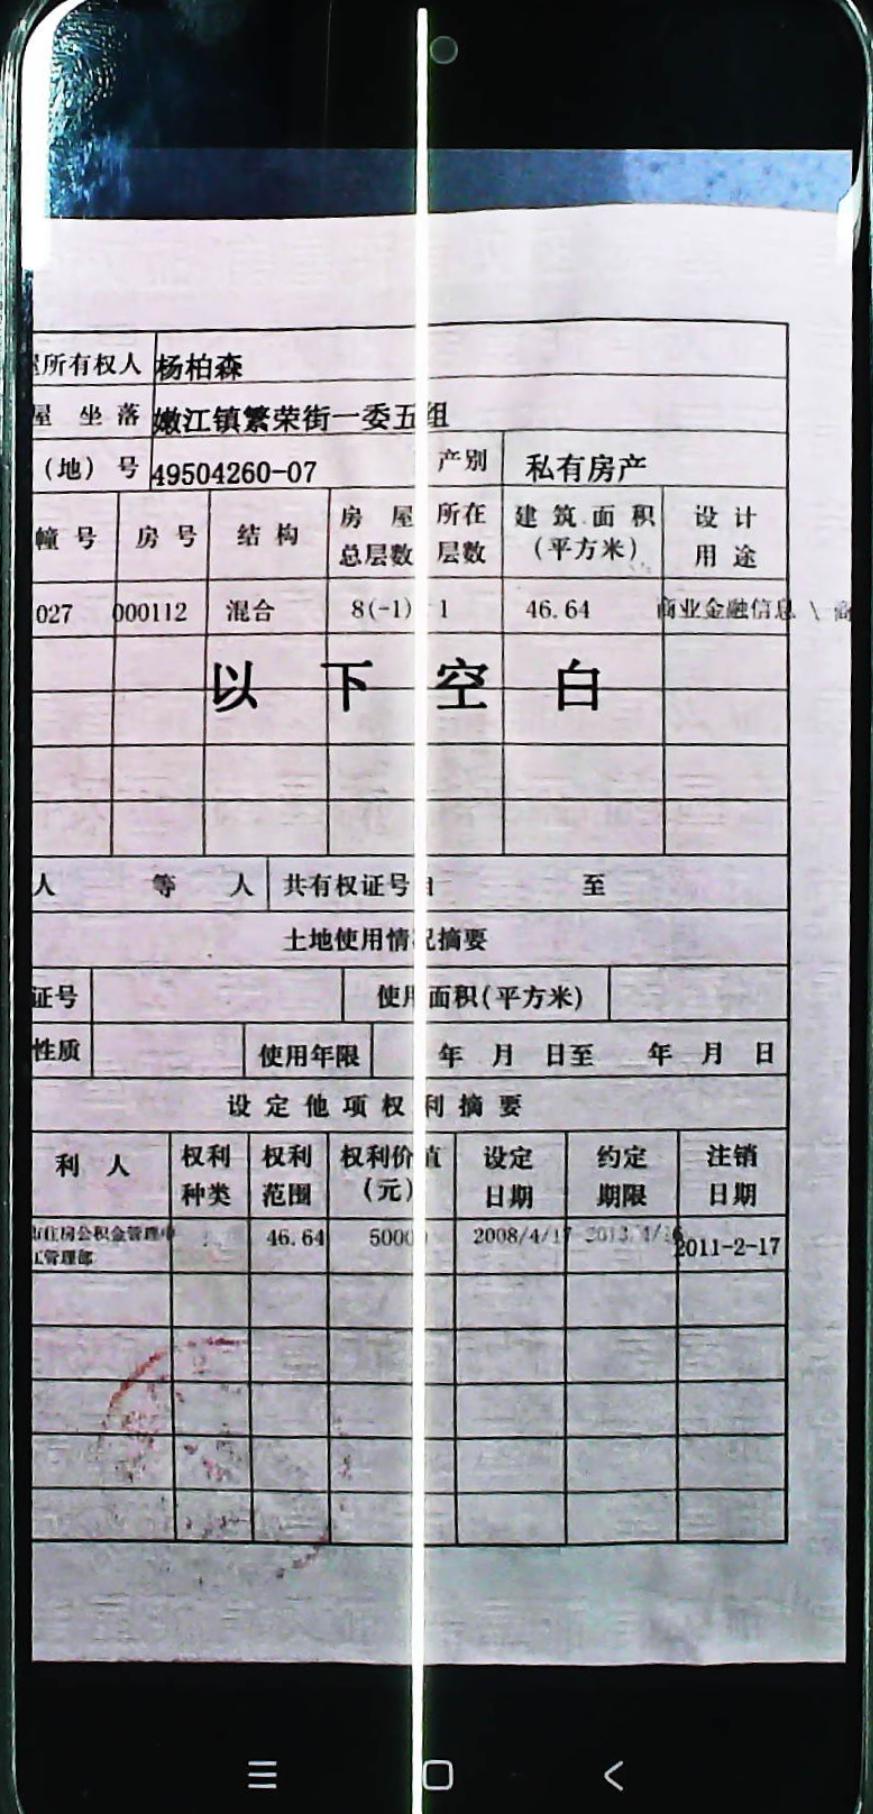 屋所有权人 杨柏森
屋 坐 落 嫩江镇繁荣街一委五组
(地) 号 49504260-07 产别 私有房产
幢 号 房 号 结 构 房 屋 总层数 所在 层数 建 筑 面 积 (平方米) 设 计 用 途
027 000112 混合 8(-1) 1 46.64 商业金融信息 \
以 下 空 白
人 等 人 共有权证号 至
土地使用情况摘要
证号 使用面积(平方米)
性质 使用年限 年 月 日至 年 月 日
设 定 他 项 权 利 摘 要
利 人 权利 种类 权利 范围 权利价值 (元) 设定 日期 约定 期限 注销 日期
住房公积金管理中 46.64 5000 2008/4/17 2011-2-17
江管理部